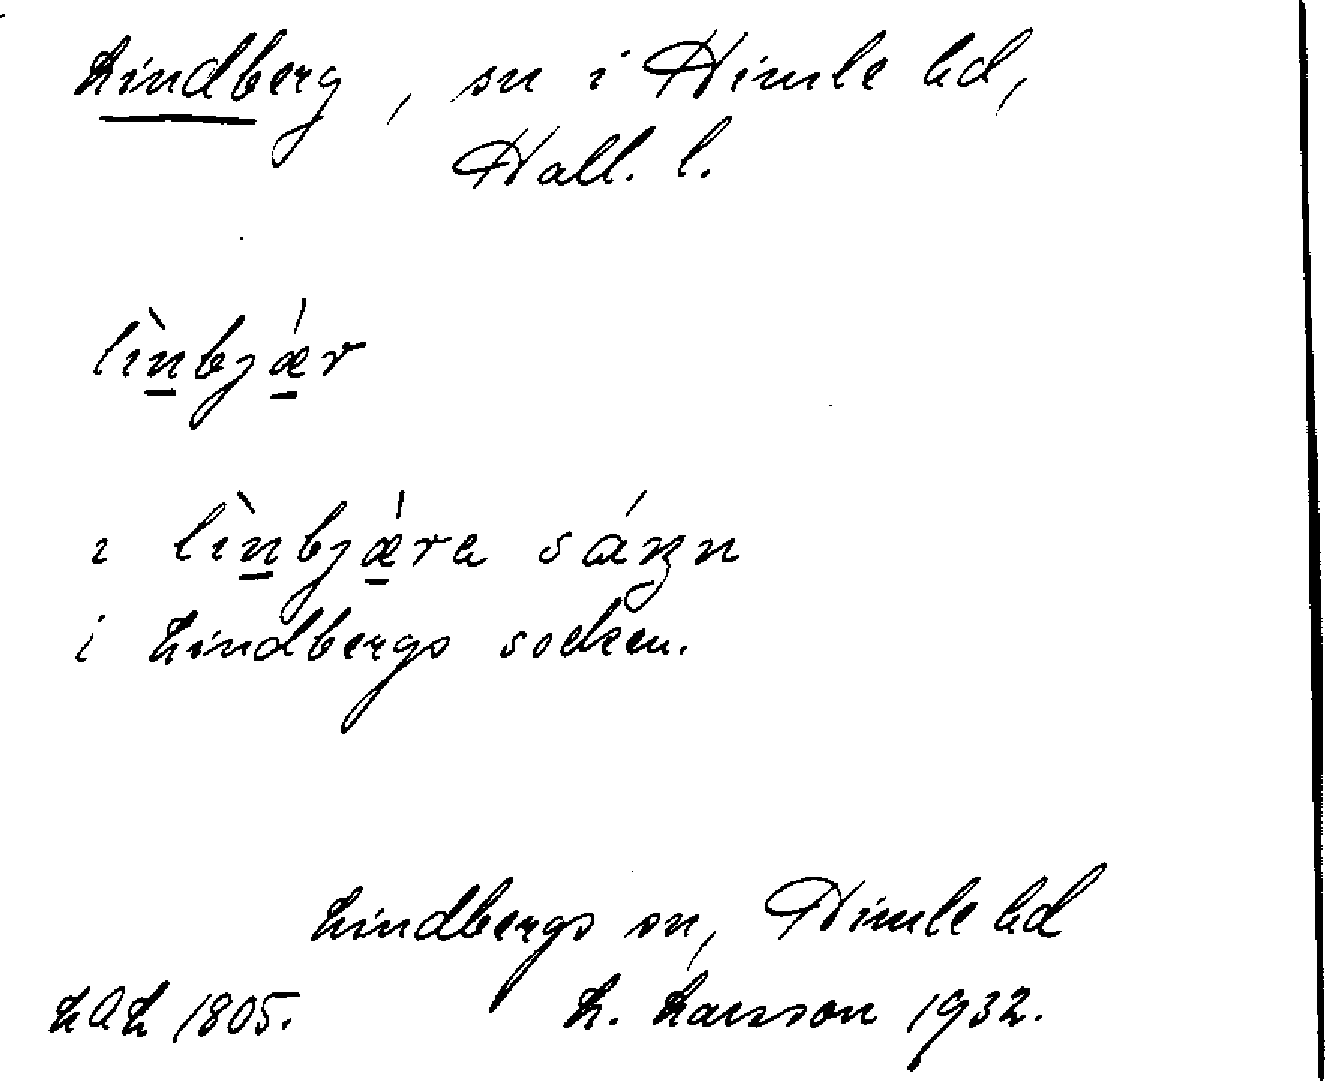 Lindberg, sn i Himle hd,
Hall. l.
lìnbjǽr
ı lìnbjǽra sáӄn
i Lindbergs socken.
Lindbergs sn, Himle hd
LAL 1805. L. Larsson 1932.